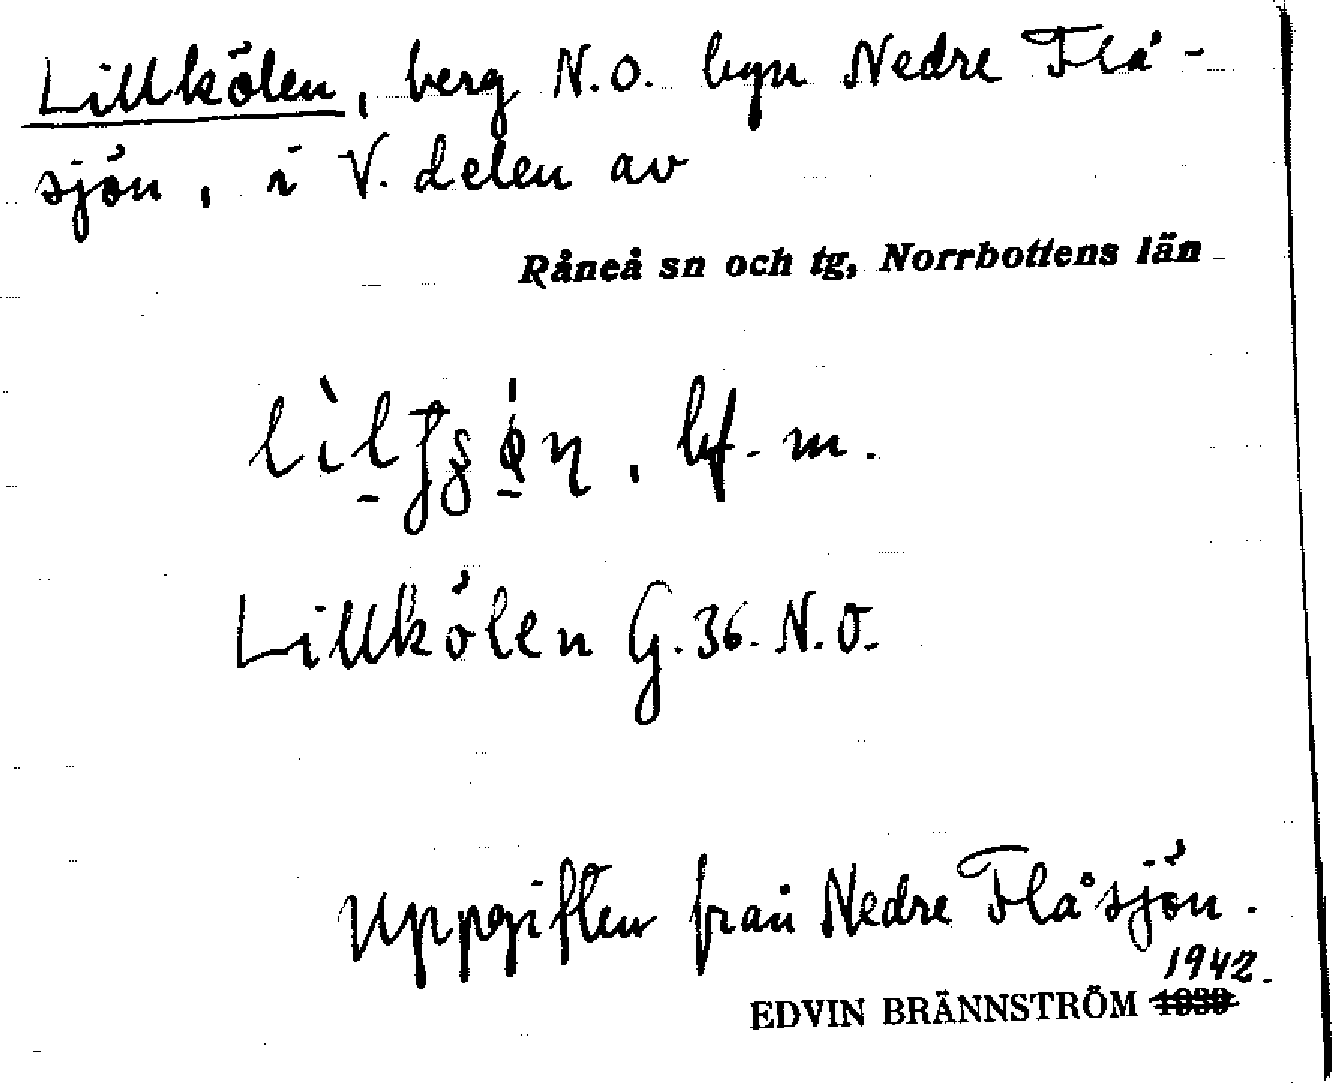 Lillkölen, berg N.O. byn Nedre Flå-
sjön, i V. delen av
Råneå sn och tg, Norrbottens län
bf. m.
Lillkölen G. 36. N.O.
Uppgiften från Nedre Flåsjön.
1942.
EDVIN BRÄNNSTRÖM 1939